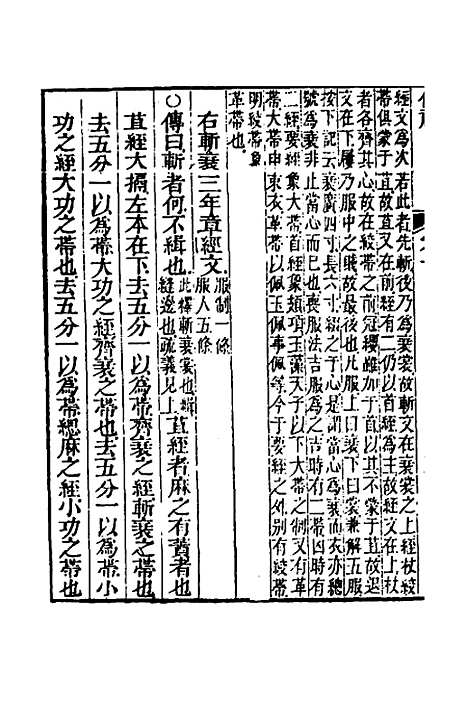 經文為次若此者先斬後乃為衰裳故斬文在衰裳之上絰杖絞
帶俱蒙于苴故苴又在前絰有二仍以首絰為主故絰文在上杖
者各齊其心故在絞帶之前冠纓雖加于首以其不蒙于苴故退
文在下屨乃服中之賤故最後也此服上曰衰下曰裳兼解五服
按下記云衰廣四寸長六寸綴之于心是謂當心為衰而衣亦總
號為衰非止當心而巳也喪服法吉服為之吉時有二帶凶時有
二絰要絰象大帶首絰象頍項玉藻天子以下大帶之制又有革
帶大帶申束衣革帶以佩玉佩事佩等今于要絰之外别有絞帶
明絞帶象
革帶也
右斬衰三年章經文服制一條
服人五條
○傳曰斬者何不緝也此釋斬衰裳也緝
緶邊也疏義見上苴絰者麻之有蕡者也
苴絰大搹左本在下去五分一以為帶齊衰之絰斬衰之帶也
去五分一以為帶大功之絰齊衰之帶也去五分一以為帶小
功之絰大功之帶也去五分一以為帶緦麻之絰小功之帶也